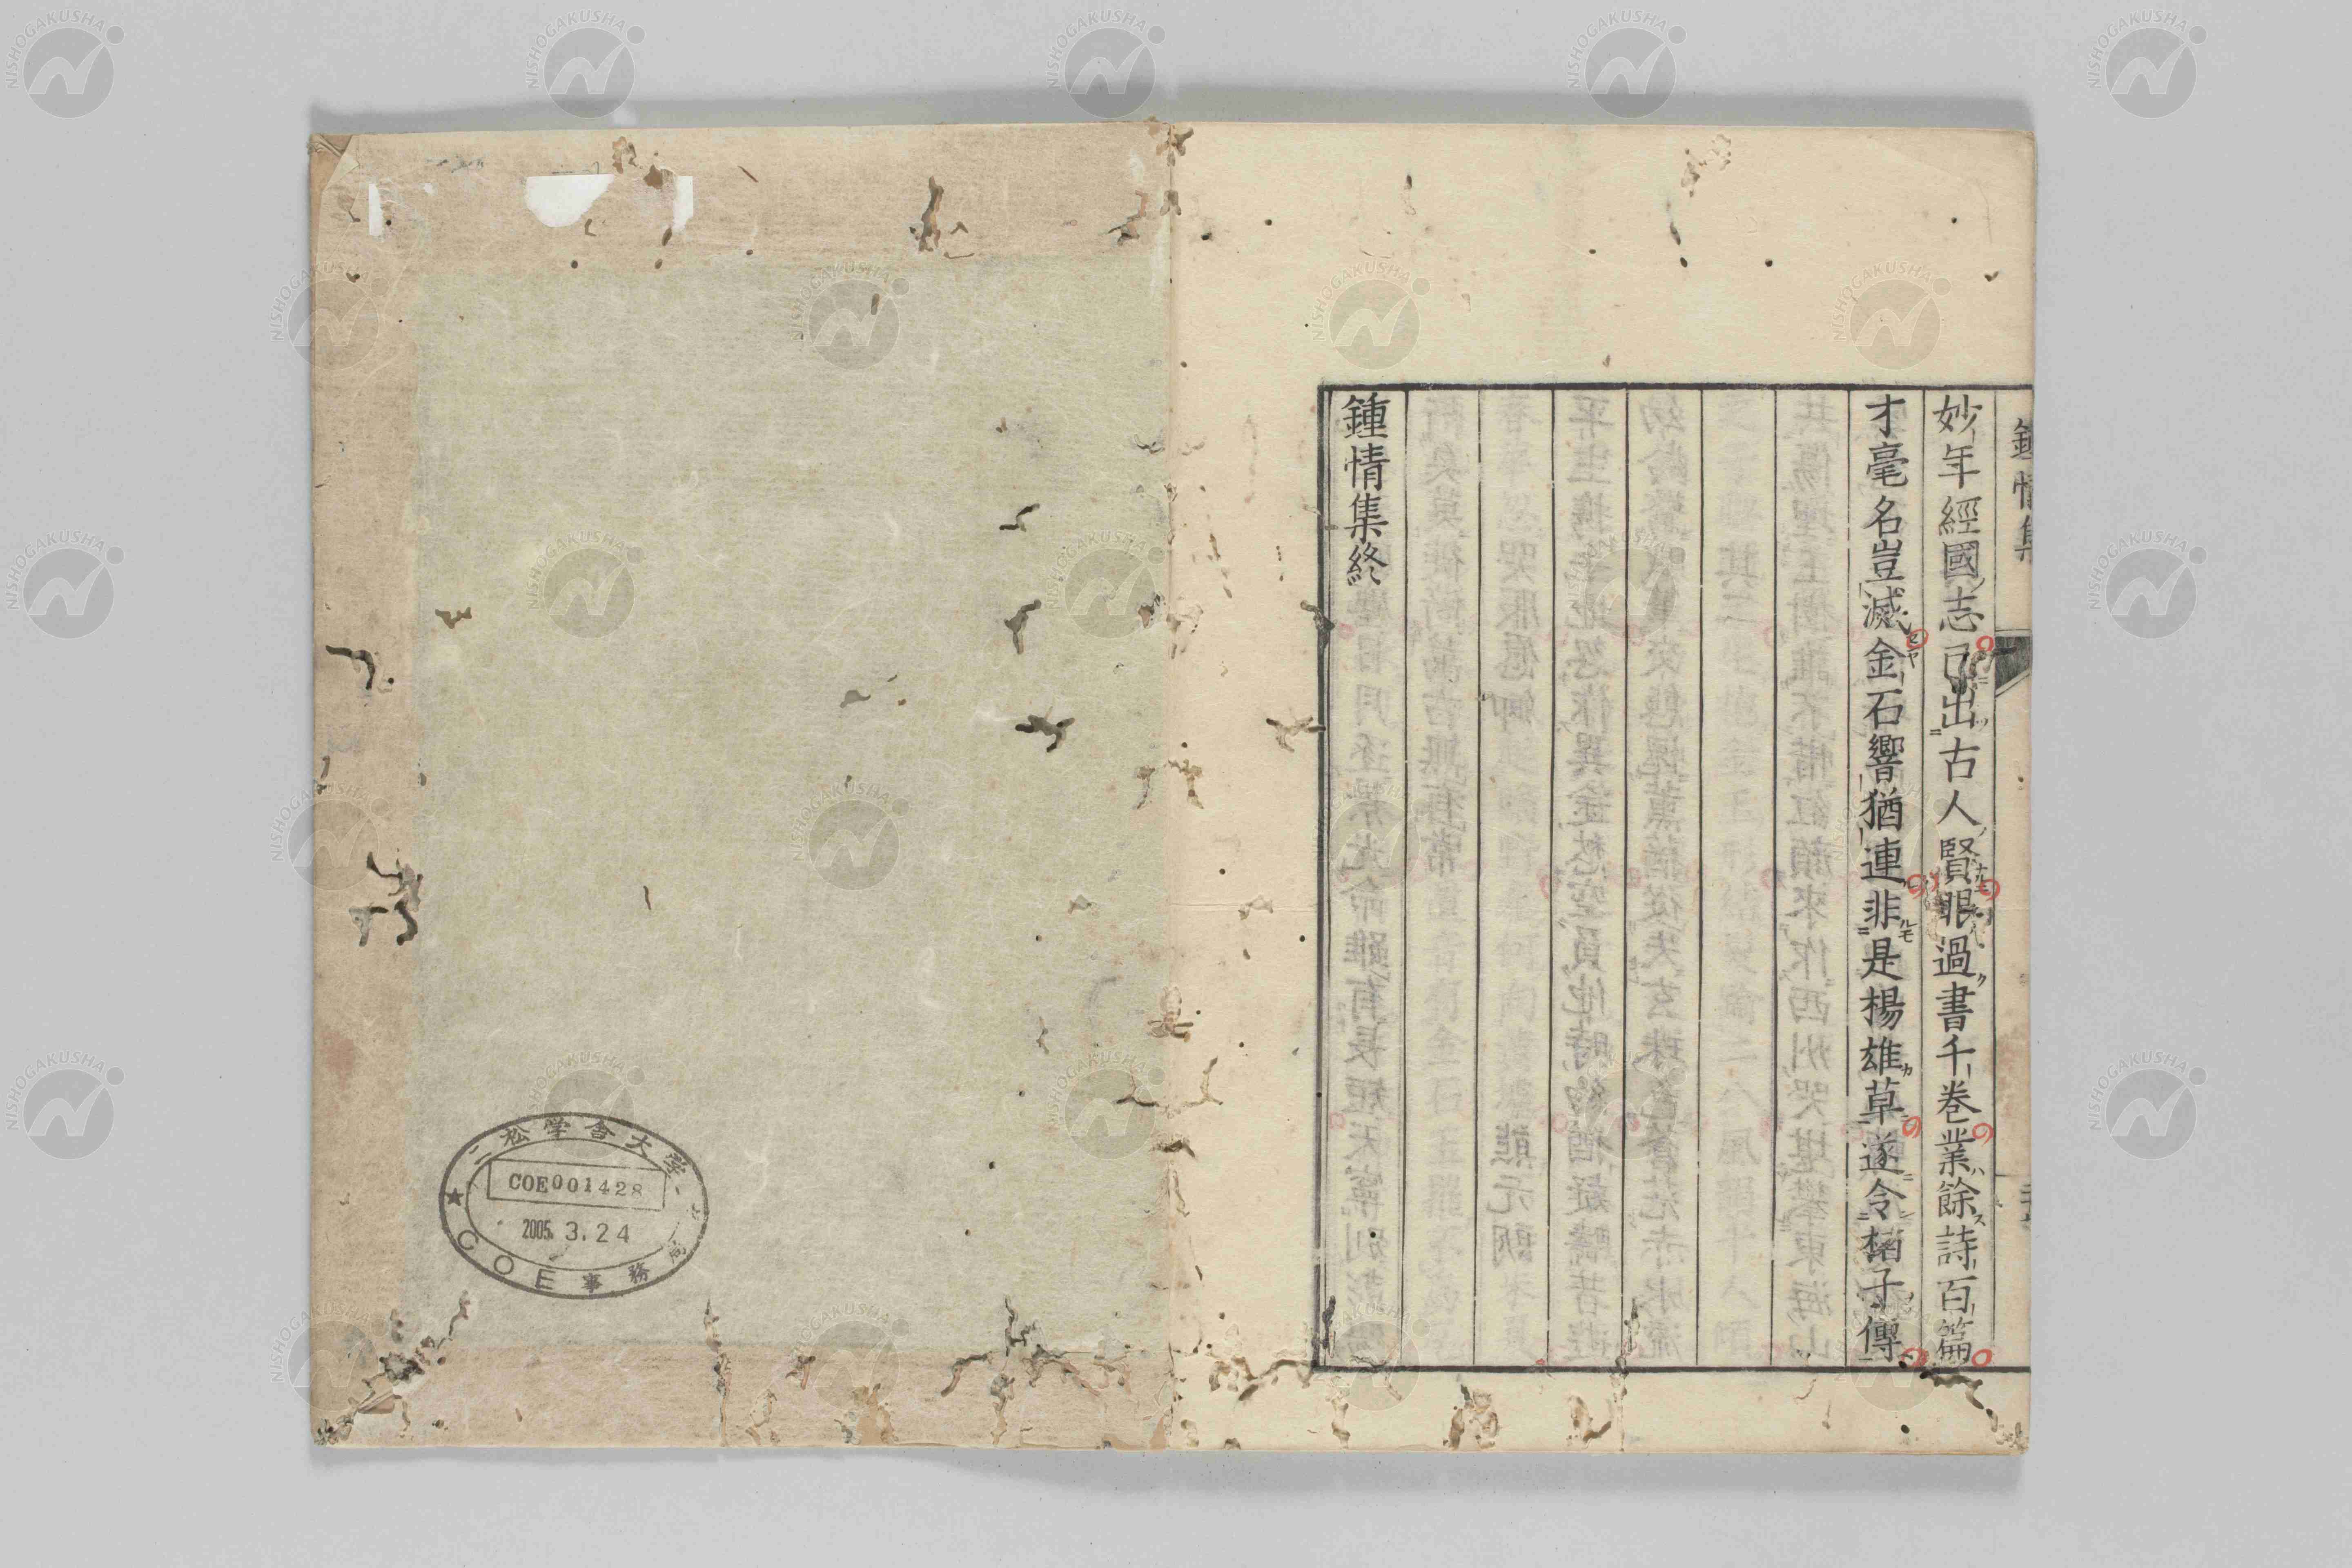 鍾情集
妙年經國志已出古人賢眼過書千卷業餘詩百篇
才毫名豈滅金石響猶連非是楊雄草遂令柏子傳
鍾情集終
二松学舎大学
COE001428
2005. 3. 24
COE事務
NISHOGAKUSHA